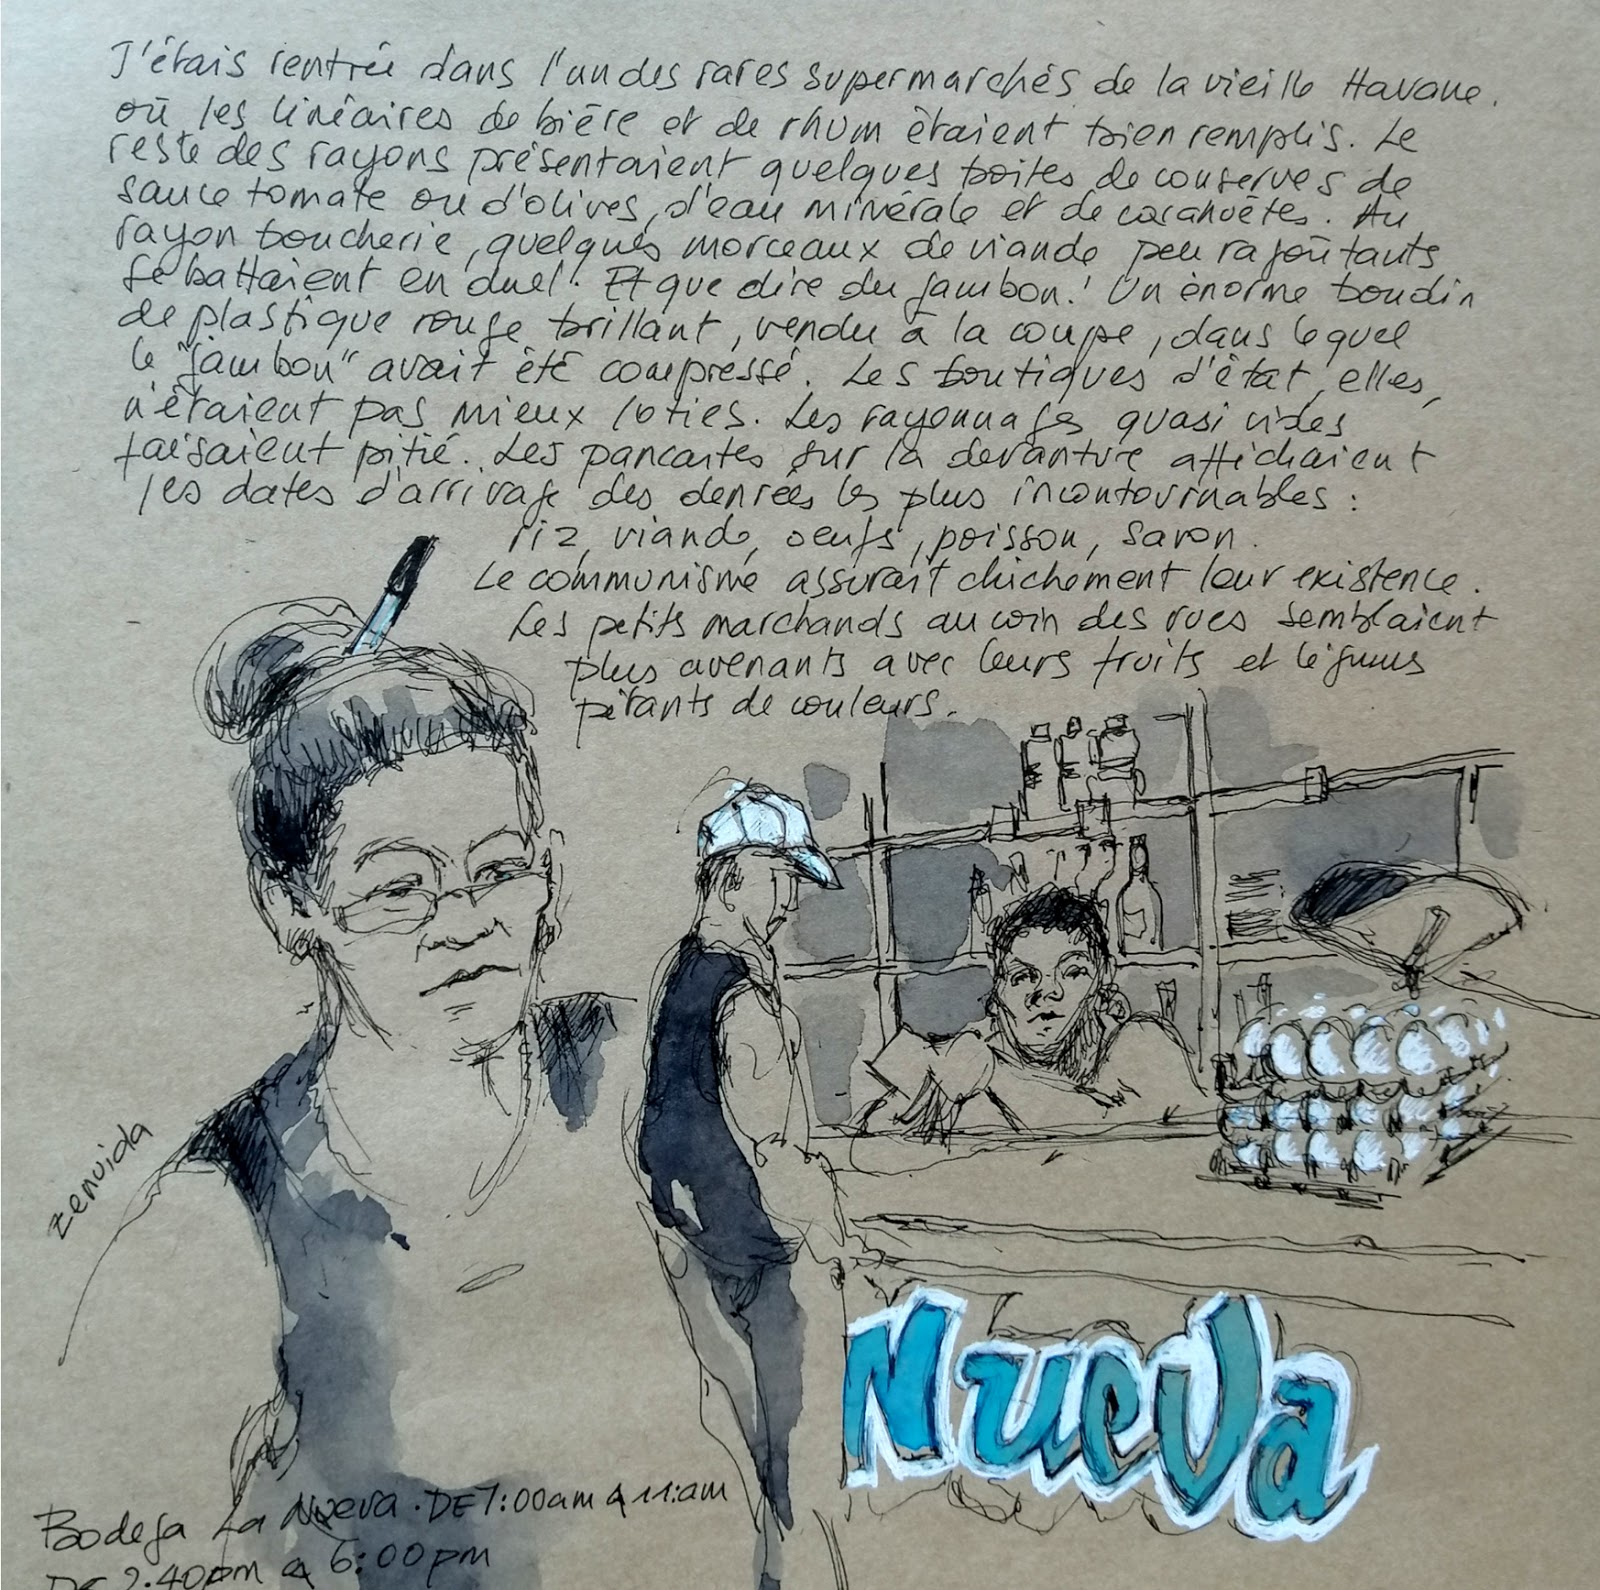 J'étais rentrée dans l'un des rares supermarchés de la vieille Havane.
où les linéaires de bière et de rhum étaient bien remplis. Le
reste des rayons présentaient quelques boites de conserves de
sauce tomate ou d'olives, d'eau minérale et de cacahuètes. Au
rayon boucherie, quelques morceaux de viande peu ragoûtants
se battaient en duel. Et que dire du jambon! Un énorme boudin
de plastique rouge brillant, vendu à la coupe, dans lequel
le "jambon" avait été compressé. Les boutiques d'état, elles,
n'étaient pas mieux loties. Les rayonnages quasi vides
faisaient pitié. Les pancartes sur la devanture affichaient
les dates d'arrivage des denrées les plus incontournables :
riz, viande, oeufs, poisson, savon.
Le communisme assurait chichement leur existence.
Les petits marchands au coin des rues semblaient
plus avenants avec leurs fruits et légumes
pétants de couleurs.
zenvida
Nueva
Bodega La Nueva. DE 7:00am a 11:am
DE 2.40pm a 6:00pm